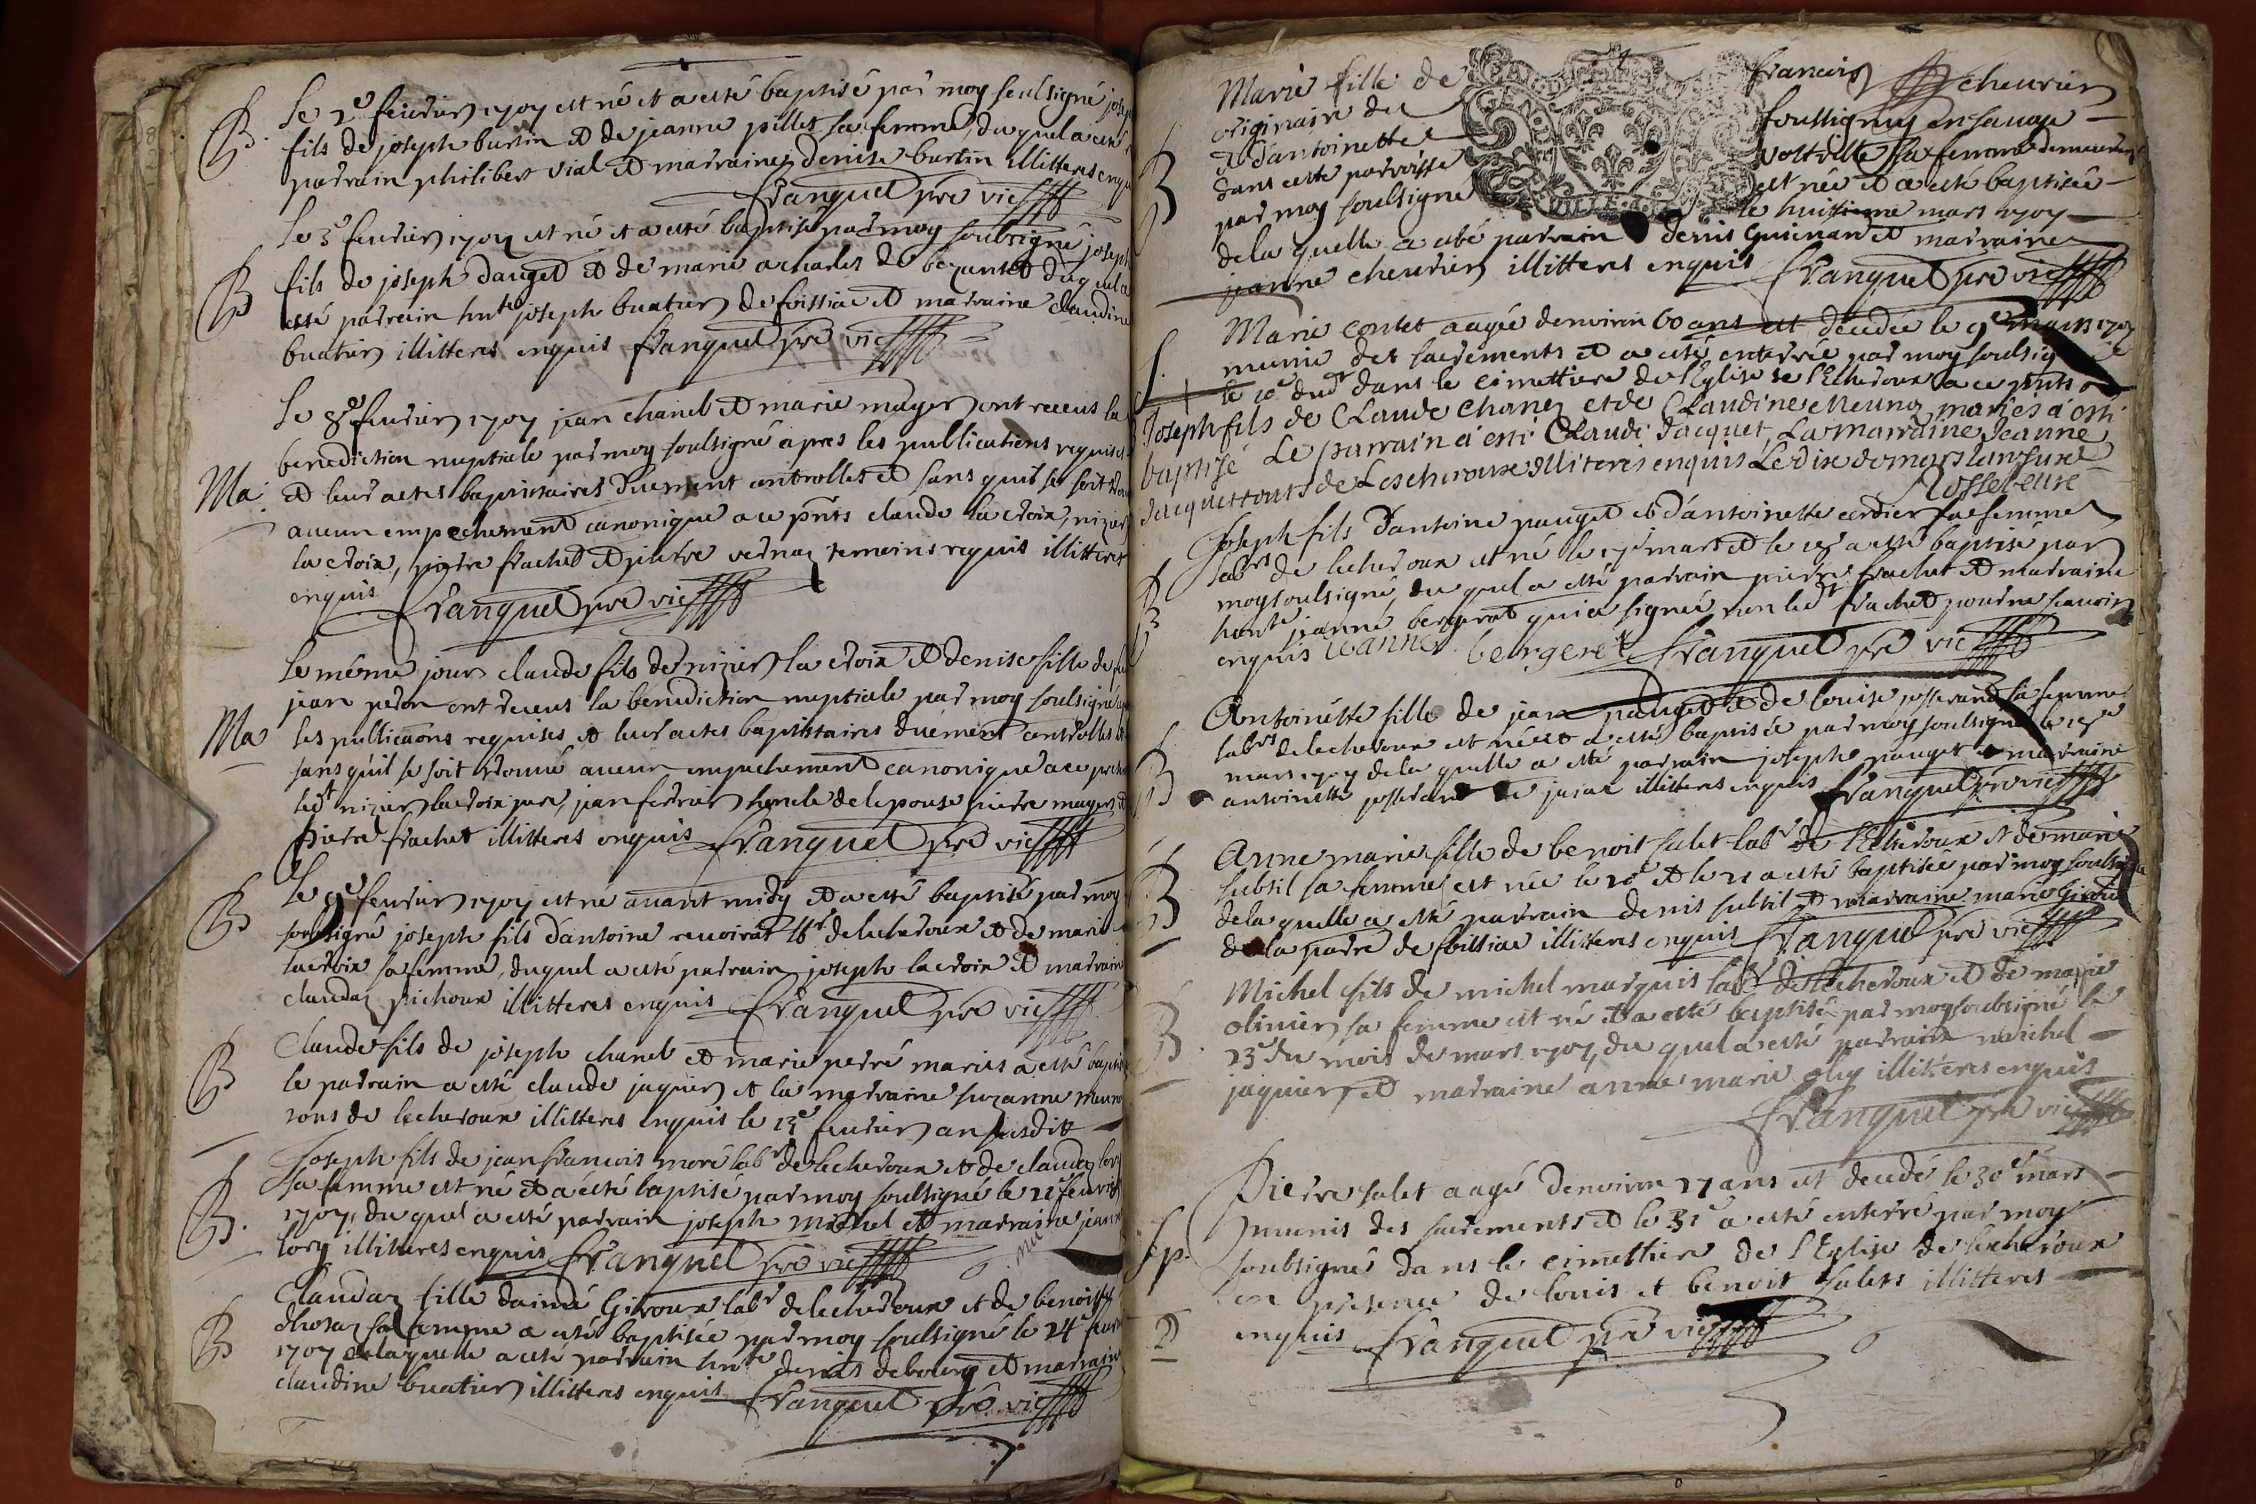 B. Le 2e feurier 1707 est né et a esté baptisé par moy soulsigné josep
fils de joseph burtin et de jeanne pillet sa femme, du quel a esté
parrain philibert vial et marraine denise burtin illitteres enqu
franquet pre vic
Le 3e feurier 1707 est né et a esté baptisé par moy soubsigné joseph
B fils de joseph dauget et de marie acharles de duquel a
esté parrain hnte joseph buatier de foissiat et marraine claudine
buatier illitteres enquis franquet pre vic
Le 8e feurier 1707 jean chanel et marie muyer ont receus la
benediction nuptiale par moy soulsigné apres les publications requises
Ma. et leur actes baptistaires duement controlles et sans quil se soit trou
aucun empechement canonique a ce pnts claude la croix, nizier
la croix, pierre frachet et pierre vernaz temoins requis illitteres
enquis franquet pre vic
Le même jour claude fils de nizier la croix et denise fille de feu
jean peron ont receus la benediction nuptiale par moy soulsigné
Ma les publicaons requises et leur actes baptistaires duement controlles et
sans quil se soit trouué aucun empechement canonique a ce pnts
ledt nizier la croix pere, jean ferrier honcle de lepouse pierre muyer et
pierre frachet illitteres enquis franquet pre vic
B Le 9e feurier 1707 est né auant midy et a esté baptisé par moy
soulsigné joseph fils dantoine reuoirat lbr de lecheroux et de marie
lacroix sa femme, duquel a esté parrain joseph lacroix et marraine
claudaz pichoux illitteres enquis franquet pre vic
B Claude fils de joseph chanel et marie peré mariés a esté baptis
le parrain a esté claude jaquier et la marraine suzanne meuno
tous de lecheroux illitteres enquis le 13e feurier an susditt
B. Joseph fils de jean francois moré labr de lecheroux et de claudaz lory
sa femme est né et a esté baptisé par moy soulsigné le 22e feurier
1707, du quel a esté parrain joseph michel et marraine jeanne
lory illitteres enquis franquet pre vic
Claudaz fille daimé Giroux labr de lecheroux et de benoiste
B sa femme a esté baptisée par moy soulsigné le 24e feur
1707 de laquelle a esté parrain hnte denis debourg et marraine
claudine buatier illitteres enquis franquet pre vic
Marie fille de francois cheurier
originaire de foussigny en sauoye
B et dantoinette sa femme demeurant
dans cette parroisse est née et a esté baptisée
par moy soulsigné le huittieme mars 1707
de la quelle a esté parrain denis Guienard et marraine
jeanne cheurier illitteres enquis franquet pre vic
Marie contet aagée denviron 60 ans est décedée le 9e mars 1707
S. munie des sacrements et a esté enterrée par moy soulsigné
le 10e dud dans le cimettiere de l'Eglise de l'Echeroux a ce pnts
Joseph fils de Claude Chanez et de Claudine Meunoz mariés a esti
baptizé Le parrain a esti Claude Jacquet, La marraine Jeanne
Jacquet touts de Lescheroux Illiteres enquis Le dixe de mars lan susd
Josseteure
Joseph fils dantoine pauget et d'antoinette cordier sa femme
labrs de lecheroux est né le 17e mars et le 18e a esté baptisé par
B moy soulsigné, du quel a esté parrain pierre frachet et marraine
honte jeanne bergeret qui a signée non ledt frachet pour ne scauoir
enquis jeanne bergeret franquet pre vic
Antoinette fille de jean pauget et de louise josserand sa femme
labrs de lecheroux est née et a esté baptisée par moy soulsigné le 18e
B mars 1707 de la quelle a esté parrain joseph pauget et marraine
antoinette josserand de jaiat illitteres enquis franquet pre vic
Anne marie fille de benoit salet labr de l'Echeroux et de marie
B subtil sa femme est née le 20e et le 21 a esté baptisée par moy soulsigné
de la quelle a esté parrain denis subtil et marraine marie Giroud
de la parre de foissiat illitteres enquis franquet pre vic
Michel fils de michel marquis labr de lecheroux et de marie
B. oliuier sa femme est né et a esté baptisé par moy soubsigné le
23e du mois de mars 1707, du quel a esté parrain michel
jaquier et marraine anne marie oby illitteres enquis
franquet pre vic
Pierre salet aagé denviron 27 ans est decedé le 30e mars
Sp. munis des sacrements et le 31e a esté enterré par moy
soubsigné dans le cimettiere de l'Eglise de lecheroux
en presence de louis et benoit salets illitteres
enquis franquet pre vic